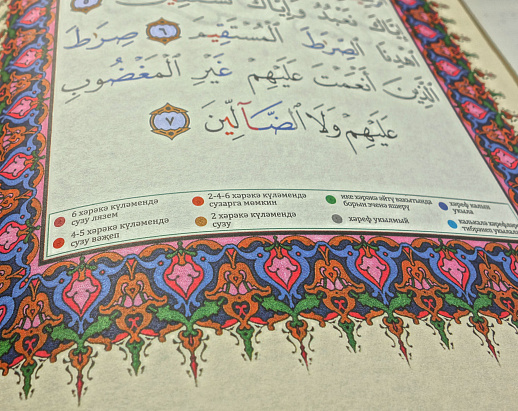 إِيَّاكَ نَعْبُدُ وَإِيَّاكَ نَسْتَعِينُ ٥
ٱهْدِنَا ٱلصِّرَٰطَ ٱلْمُسْتَقِيمَ ٦ صِرَٰطَ
ٱلَّذِينَ أَنْعَمْتَ عَلَيْهِمْ غَيْرِ ٱلْمَغْضُوبِ
عَلَيْهِمْ وَلَا ٱلضَّآلِّينَ ٧
6 хәрәкә күләмендә
сузу лязем
4-5 хәрәкә күләмендә
сузу важеп
2-4-6 хәрәкә күләмендә
сузарга мөмкин
2 хәрәкә күләмендә
сузу
ике хәрәкә әйтү вакытында
хәреф укылмый
хәреф калын
укыла